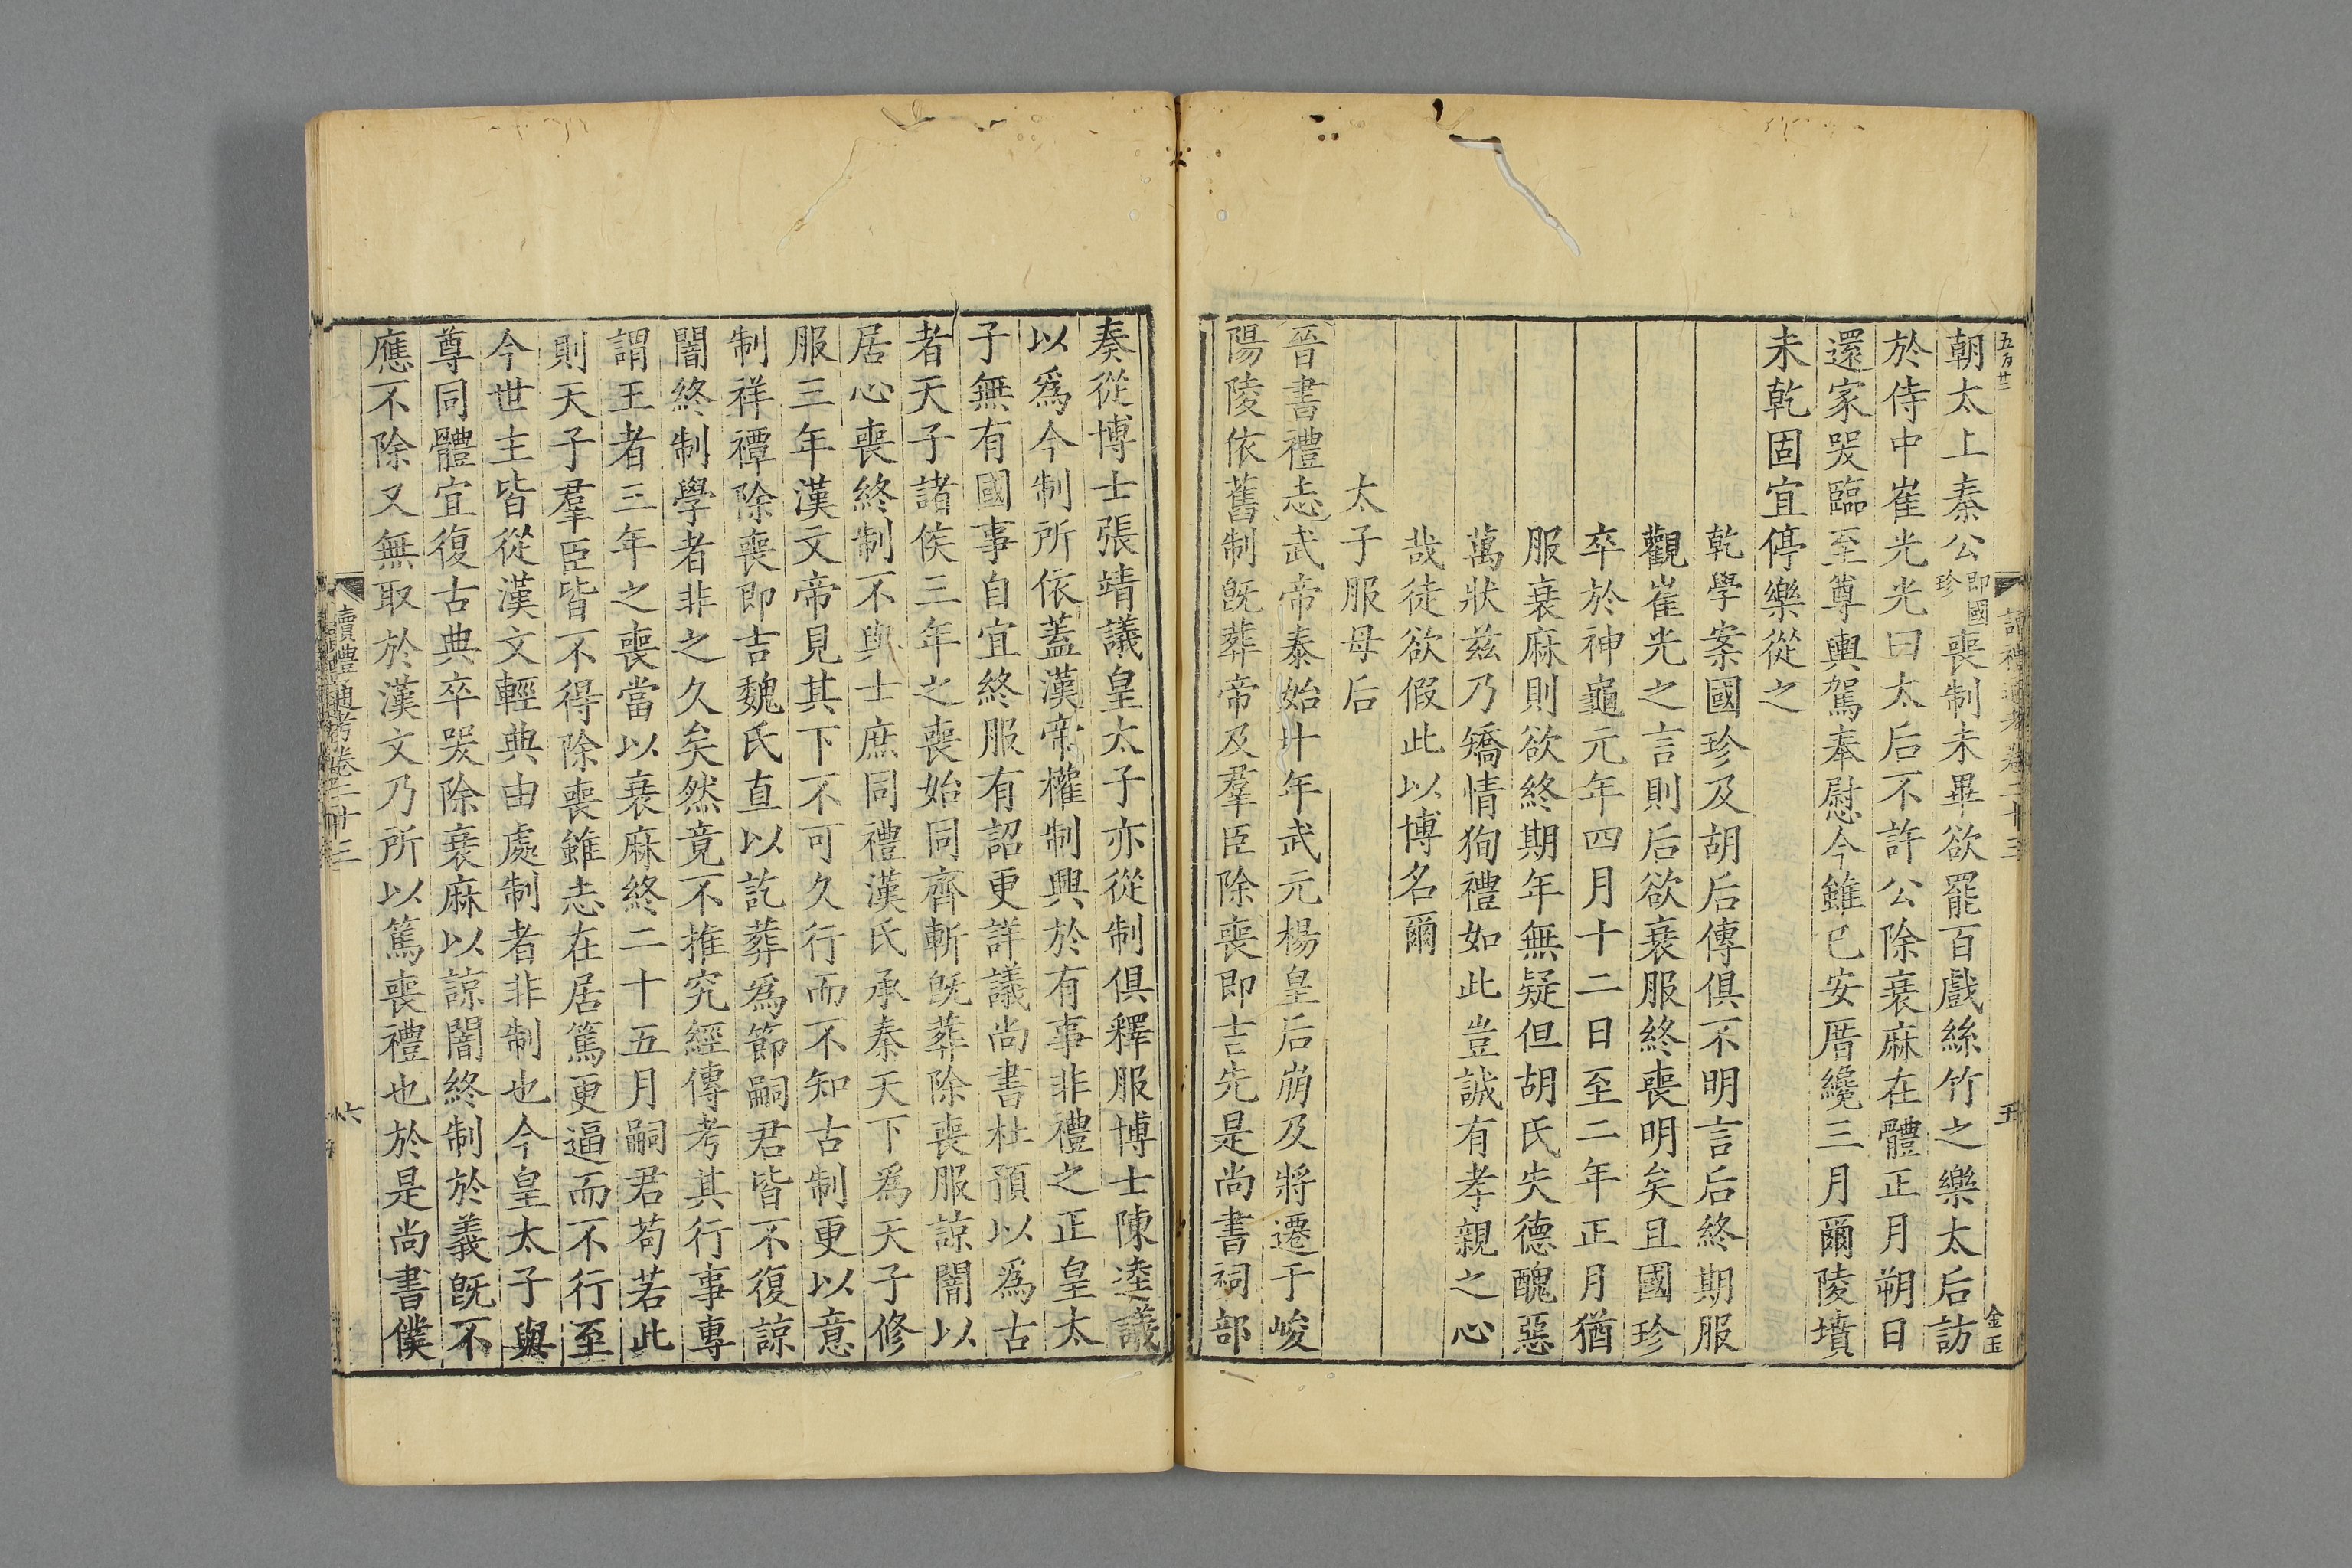 朝太上秦公即國珍喪制未畢欲罷百戲絲竹之樂太后訪
於侍中崔光光曰太后不許公除衰麻在體正月朔日
還家哭臨至尊輿駕奉慰今雖已安厝纔三月爾陵墳
未乾固宜停樂從之
乾學案國珍及胡后傳俱不明言后終期服
觀崔光之言則后欲衰服終喪明矣且國珍
卒於神龜元年四月十二日至二年正月猶
服衰麻則欲終期年無疑但胡氏失德醜惡
萬狀玆乃矯情狥禮如此豈誠有孝親之心
哉徒欲假此以博名爾
太子服母后
晉書禮志武帝泰始十年武元楊皇后崩及將遷于峻
陽陵依舊制旣葬帝及羣臣除喪即吉先是尚書祠部
奏從博士張靖議皇太子亦從制俱釋服博士陳逵議
以爲今制所依蓋漢帝權制興於有事非禮之正皇太
子無有國事自宜終服有詔更詳議尚書杜預以爲古
者天子諸侯三年之喪始同齊斬旣葬除喪服諒闇以
居心喪終制不與士庶同禮漢氏承秦天下爲天子修
服三年漢文帝見其下不可久行而不知古制更以意
制祥禫除喪即吉魏氏直以訖葬爲節嗣君皆不復諒
闇終制學者非之久矣然竟不推究經傳考其行事專
謂王者三年之喪當以衰麻終二十五月嗣君苟若此
則天子羣臣皆不得除喪雖志在居篤更逼而不行至
今世主皆從漢文輕典由處制者非制也今皇太子與
尊同體宜復古典卒哭除衰麻以諒闇終制於義旣不
應不除又無取於漢文乃所以篤喪禮也於是尚書僕
讀禮通考卷二十三
六
五
金玉